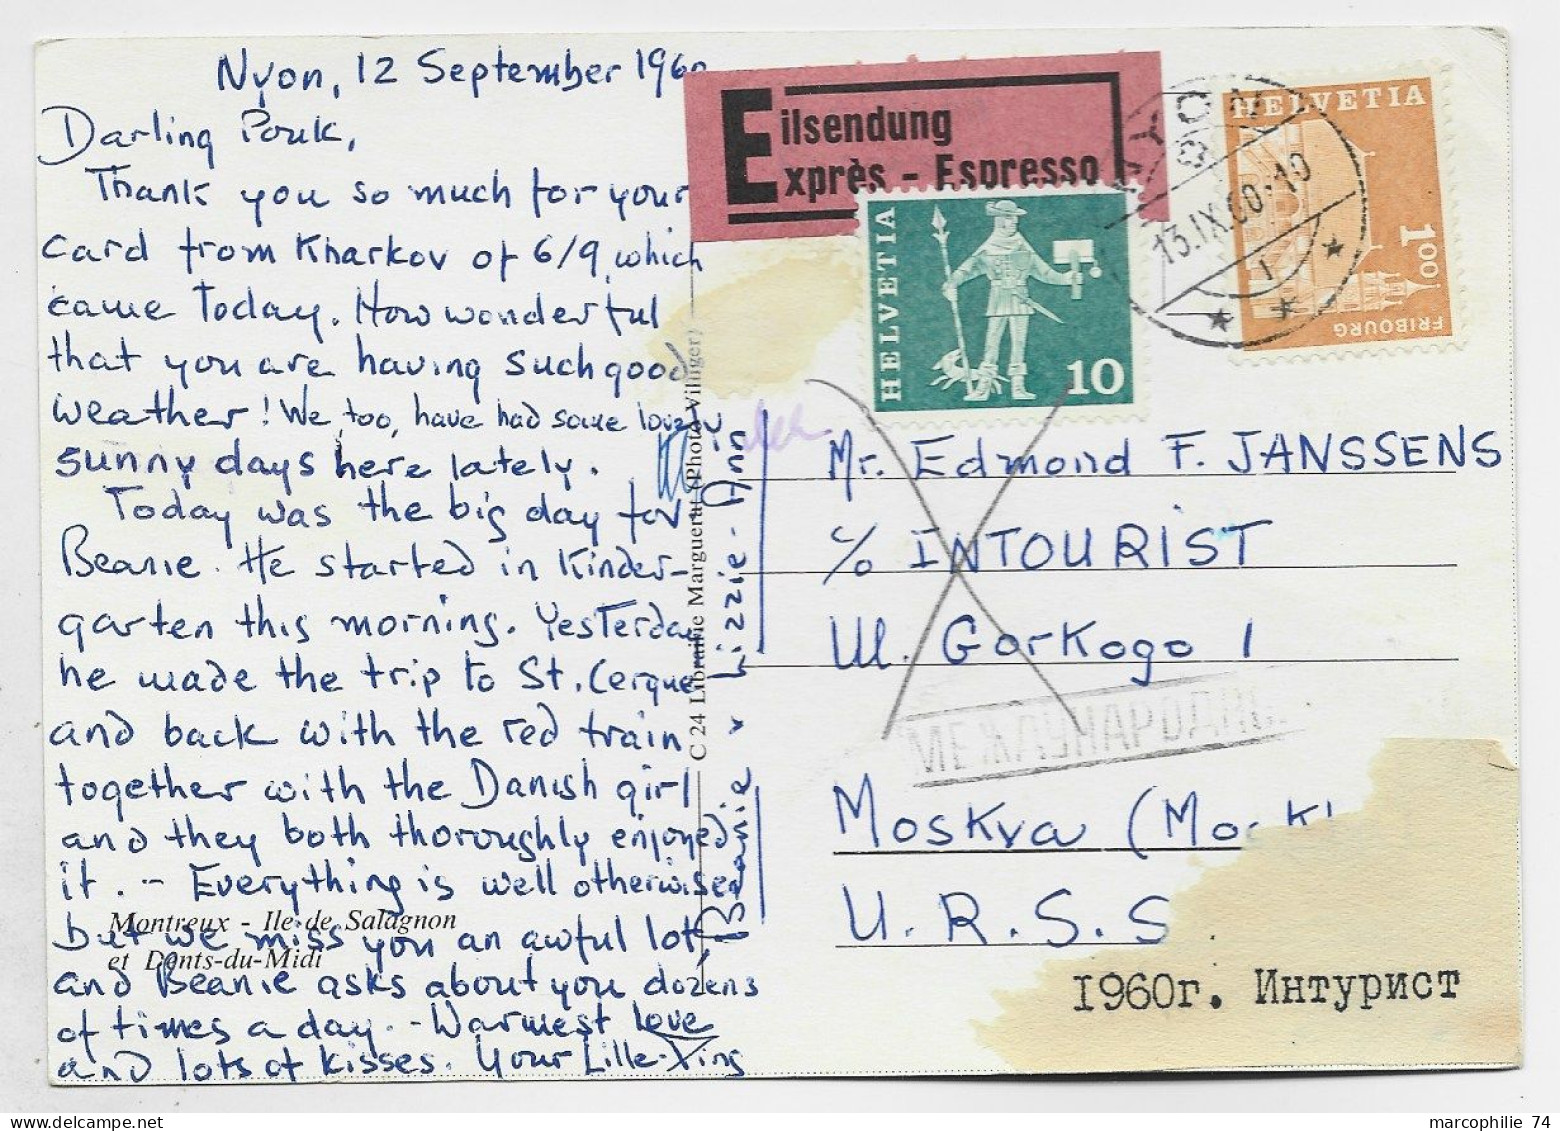 Nyon, 12 September 1960
Darling Pouk,
Thank you so much for your
card from Kharkov of 6/9, which
came today. How wonderful
that you are having such good
weather! We, too, have had some lovely
sunny days here lately.
Today was the big day for
Beanie. He started in Kinder-
garten this morning. Yesterday
he made the trip to St. Cergue
and back with the red train
together with the Danish girl
and they both thoroughly enjoyed
it. – Everything is well otherwise
but we miss you an awful lot,
and Beanie asks about you dozens
of times a day. – Warmest love
and lots of kisses. Your Lille-Ting
Beanie x Lizzie-Ann
Montreux - Ile de Salagnon
et Dents-du-Midi
C 24 Librairie Marguerat (Photo Villiger)
Eilsendung
Exprès - Espresso
HELVETIA
10
HELVETIA
1.00
FRIBOURG
NYON
13.IX.60.10
1
Mr. Edmond F. JANSSENS
c/o INTOURIST
Ul. Gorkogo 1
МЕЖДУНАРОДНО
Moskva (Mosk
U.R.S.S
1960г. Интурист
marcophilie 74